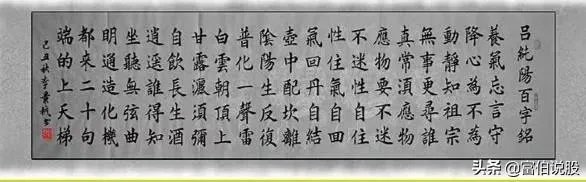 呂純陽百字銘
養氣忘言守
降心為不為
動靜知祖宗
無事更尋誰
真常湏應物
應物要不迷
不迷性自住
性住氣自回
氣回丹自結
壺中配坎離
陰陽生反復
普化一聲雷
白雲朝頂上
甘露灑湏彌
自飲長生酒
逍遙誰得知
坐聽無弦曲
明通造化機
都來二十句
端的上天梯
己丑秋李
头条 @富伯说股